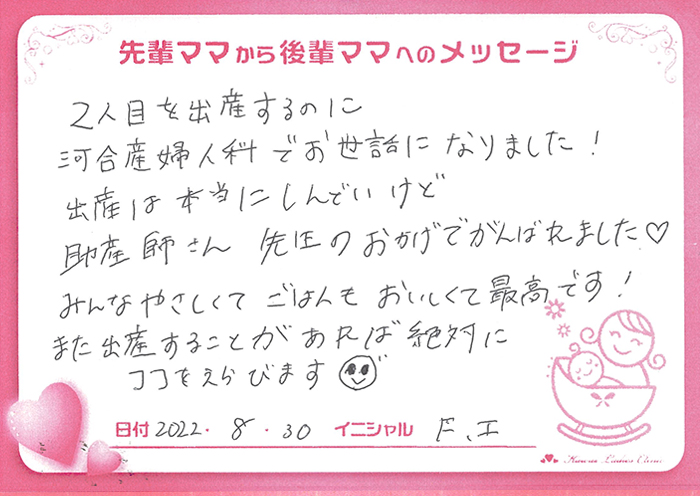 先輩ママから後輩ママへのメッセージ
2人目を出産するのに
河合産婦人科でお世話になりました!
出産は本当にしんどいけど
助産師さん 先生のおかげでがんばれました♡
みんなやさしくて ごはんも おいしくて最高です!
また出産することがあれば絶対に
ココをえらびます
日付 2022・8・30 イニシャル F、I
Kawai Ladies Clinic